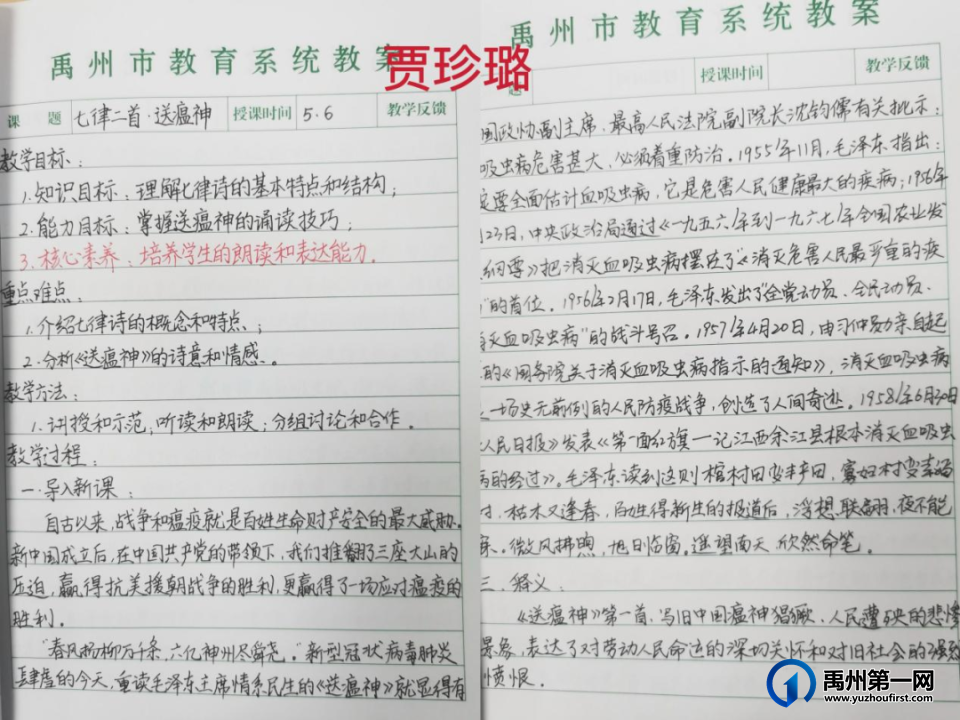 禹州市教育系统教案
贾珍璐
课 题 七律二首·送瘟神 授课时间 5.6 教学反馈
教学目标：
1.知识目标：理解七律诗的基本特点和结构；
2.能力目标：掌握送瘟神的诵读技巧；
3.核心素养：培养学生的朗读和表达能力.
重点难点：
1.介绍七律诗的概念和特点；
2.分析《送瘟神》的诗意和情感.
教学方法：
1.讲授和示范；听读和朗读；分组讨论和合作.
教学过程：
一.导入新课：
自古以来，战争和瘟疫就是百姓生命财产安全的最大威胁.
新中国成立后，在中国共产党的带领下，我们推翻了三座大山的
压迫，赢得抗美援朝战争的胜利，更赢得了一场应对瘟疫的
胜利.
“春风杨柳万千条，六亿神州尽舜尧。”新型冠状病毒肺炎
肆虐的今天，重读毛泽东主席情系民生的《送瘟神》就显得有
禹州市教育系统教案
题 授课时间 教学反馈
国政协副主席、最高人民法院副院长沈钧儒有关批示：
吸虫病危害甚大，必须着重防治。1955年11月，毛泽东指出：
要全面估计血吸虫病，它是危害人民健康最大的疾病；1956年
23日，中央政治局通过《一九五六年到一九六七年全国农业发
纲要》把消灭血吸虫病摆在了“消灭危害人民最严重的疾
”的首位。1956年2月17日，毛泽东发出了“全党动员、全民动员、
灭血吸虫病”的战斗号召。1957年4月20日，由习仲勋亲自起
的《国务院关于消灭血吸虫病指示的通知》，消灭血吸虫病
一场史无前例的人民防疫战争，创造了人间奇迹。1958年6月30日
人民日报》发表《第一面红旗—记江西余江县根本消灭血吸虫
病的经过》。毛泽东读到这则棺材田变丰产田，寡妇村变幸福
村，枯木又逢春，百姓得新生的报道后，浮想联翩，夜不能
寐。微风拂煦，旭日临窗。遥望南天，欣然命笔。
三.释义：
《送瘟神》第一首，写旧中国瘟神猖獗，人民遭殃的悲惨
景象，表达了对劳动人民命运的深切关怀和对旧社会的强烈
愤恨.
禹州第一网
www.yuzhoufirst.com